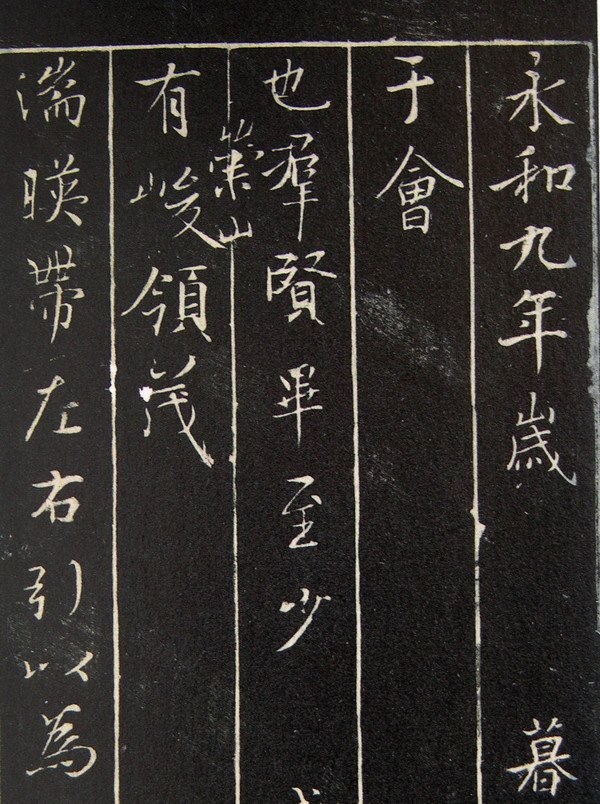 永和九年歲 暮
于會
也羣賢畢至少
有崇山峻領茂
湍暎帶左右引以為